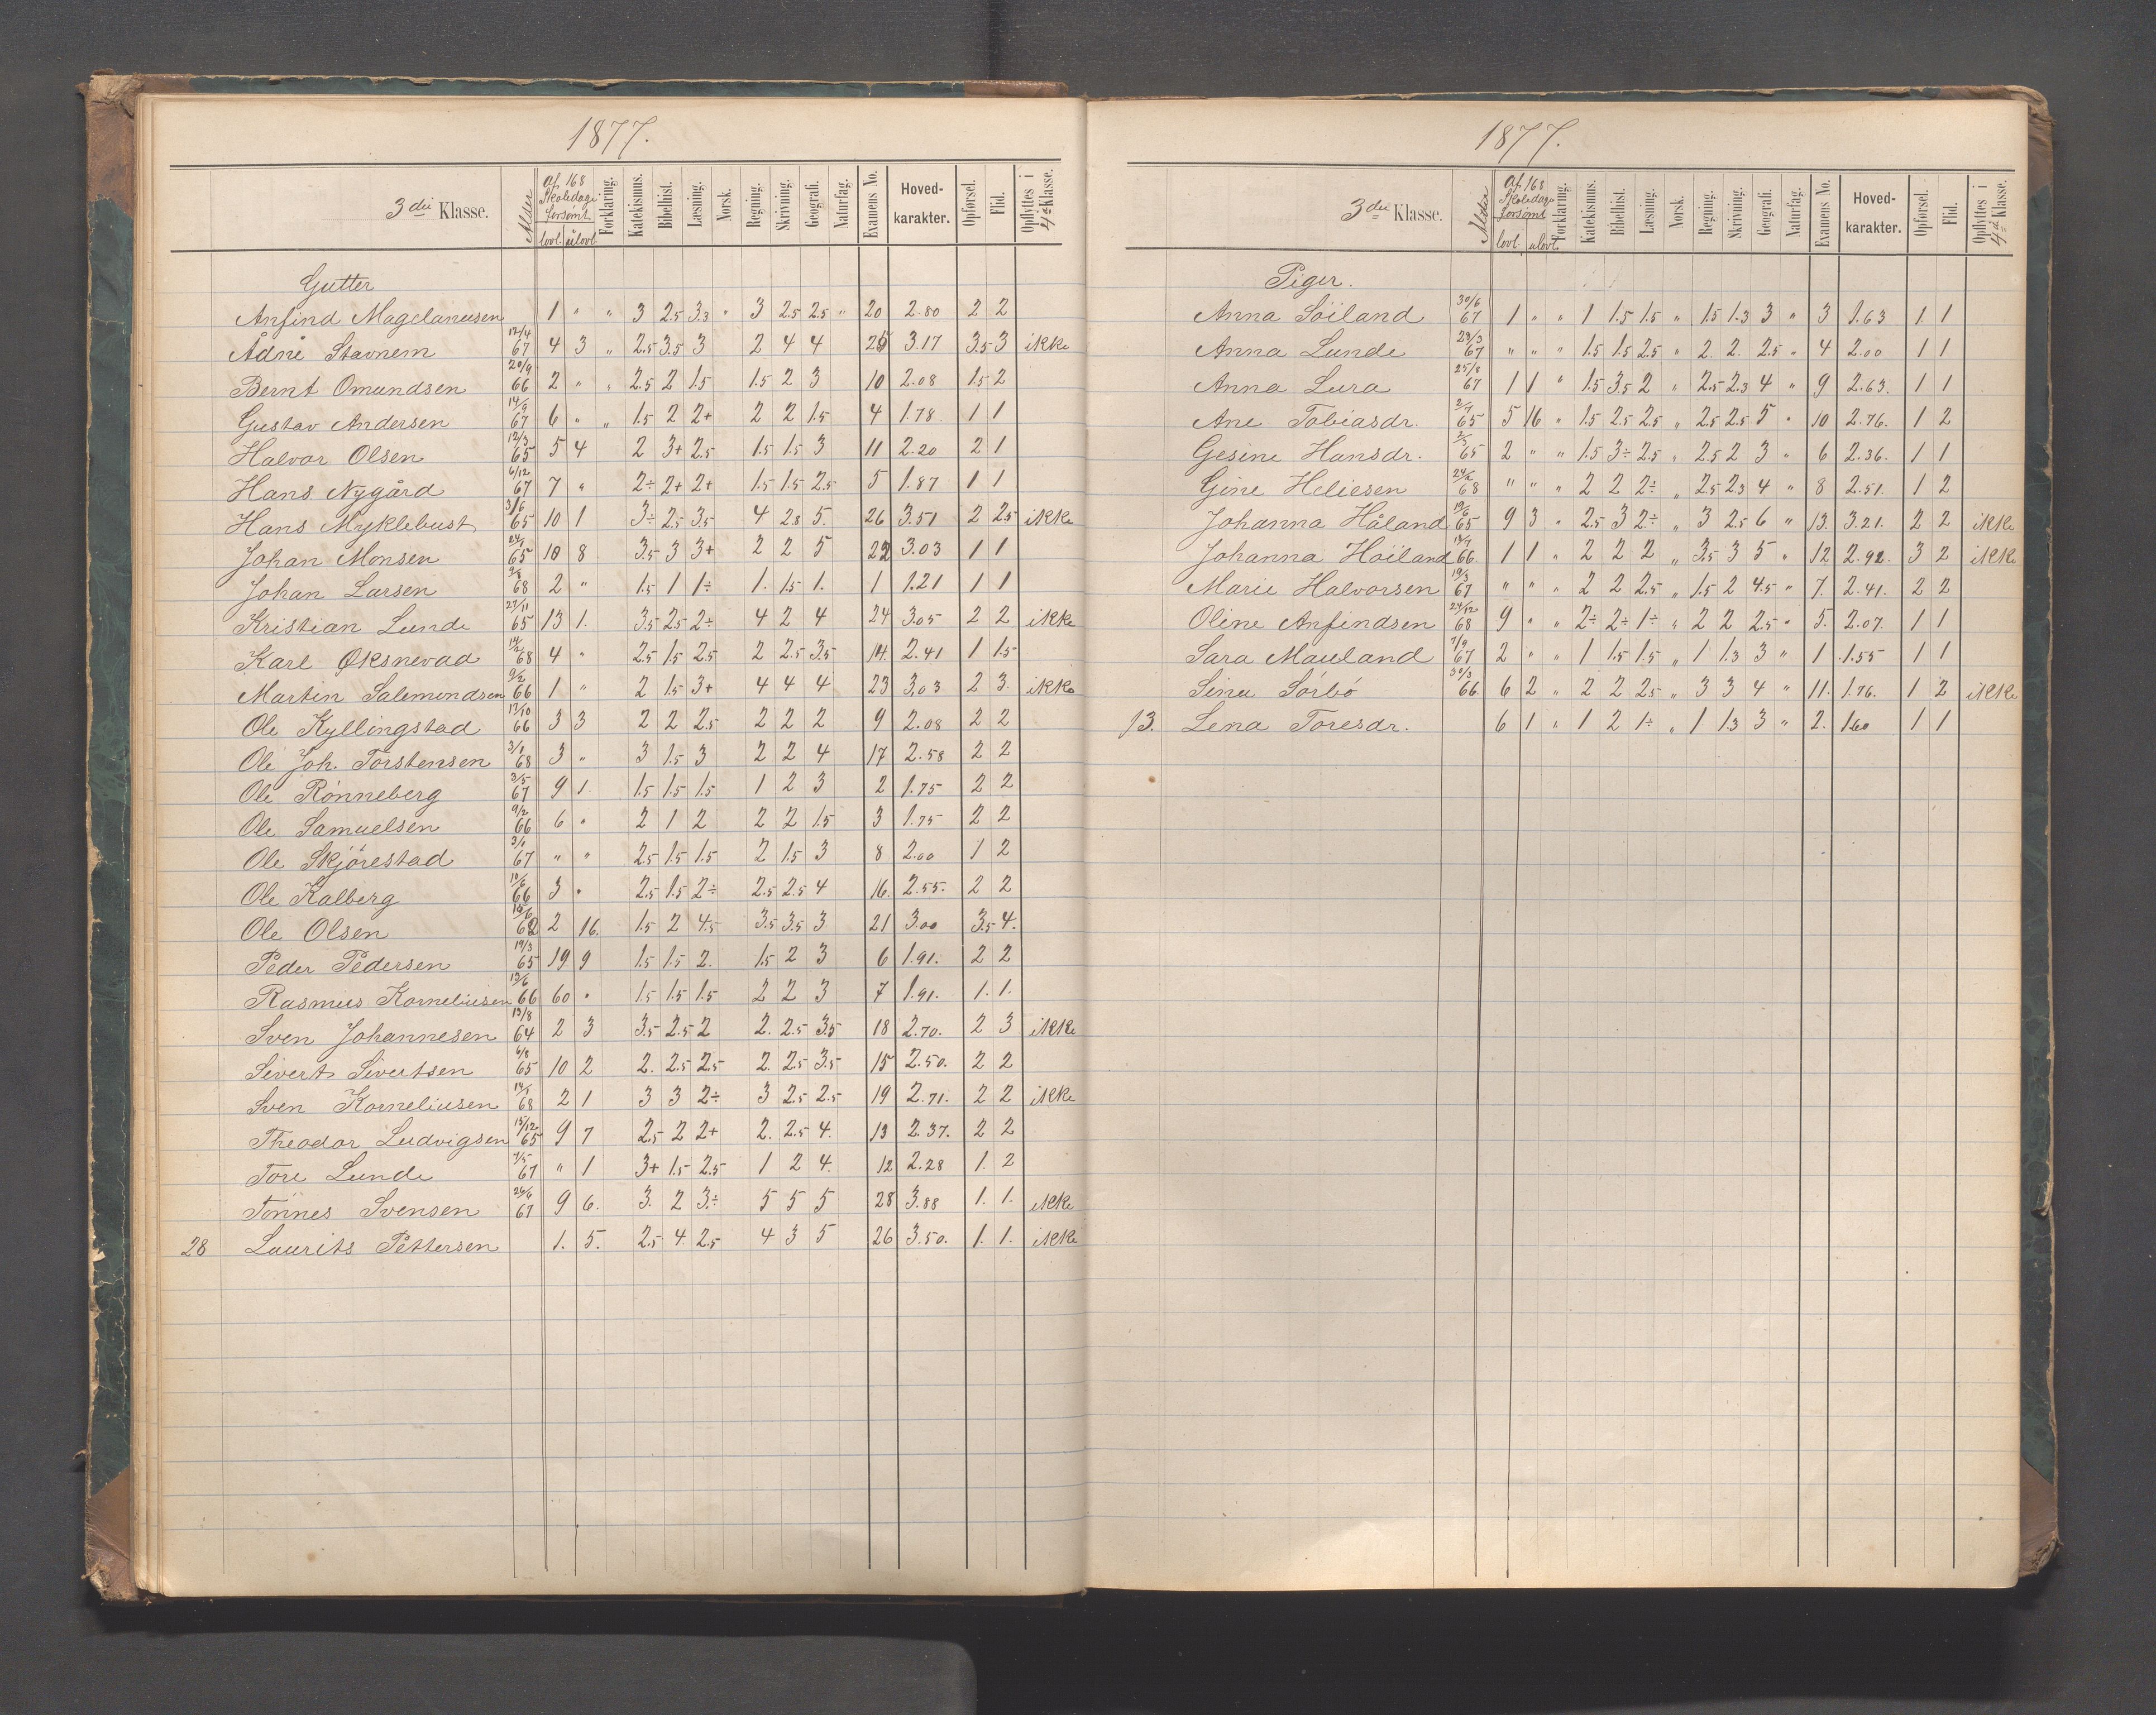 1877.
3die Klasse. Alder Af 168 Skoledage forsømt lovl. ulovl. Forklaring. Katekismus. Bibelhist. Læsning. Norsk. Regning. Skrivning. Geografi. Naturfag. Examens No. Hoved-karakter. Opførsel. Flid. Opflyttes i 4de Klasse.
Gutter
Anfind Magelanusen 1 " " 3 2.5 3.3 " 3 2.5 2.5 " 20 2.80 2 2
Ådne Stavnem 12/4 67 4 3 " 2.5 3.5 3 2 4 4 25 3.17 3.5 3 ikke
Bernt Omundsen 20/9 66 2 " " 2.5 2 1.5 1.5 2 3 10 2.08 1.5 2
Gustav Andersen 14/9 67 6 " " 1.5 2 2+ 2 2 1.5 4 1.78 1 1
Halvor Olsen 12/3 65 5 4 2 3+ 2.5 1.5 1.5 3 11 2.20 2 1
Hans Nygård 6/12 67 7 " 2÷ 2+ 2+ 1.5 1.5 2.5 5 1.87 1 1
Hans Myklebust 3/6 65 10 1 3÷ 2.5 3.5 4 2.8 5. 26 3.51 2 2.5 ikke
Johan Monsen 24/1 65 10 8 3.5 3 3+ 2 2 5 22 3.03 1 1
Johan Larsen 68 2 " 1.5 1 1÷ 1. 1.5 1. 1 1.21 1 1
Kristian Lunde 27/11 65 13 1. 3.5 2.5 2÷ 4 2 4 24 3.05 2 2 ikke
Karl Øksnevad 14/2 68 4 " 2.5 1.5 2.5 2 2.5 3.5 14. 2.41 1 1.5
Martin Salemondsen 9/2 66 1 " 2 1.5 3+ 4 4 4 23 3.03 2 3. ikke
Ole Kyllingstad 13/10 66 3 3 2 2 2.5 2 2 2 9 2.08 2 2
Ole Joh. Torstensen 3/1 68 3 " 3 1.5 3 2 2 4 17 2.58 2 2
Ole Rønneberg 3/5 67 9 1. 1.5 1.5 1.5 1 2 3 2 1.75 2 2
Ole Samuelsen 9/2 66 6 " 2 1 2 2 2 1.5 3 1.75 2 2
Ole Skjørestad 3/1 67 " " 2.5 1.5 1.5 2 1.5 3 8 2.00 1 2
Ole Kalberg 10/6 66 3 " 2.5 1.5 2÷ 2.5 2.5 4 16. 2.55. 2 2
Ole Olsen 2 16. 1.5 2 4.5 3.5 3.5 3 21 3.00 3.5 4.
Peder Pedersen 19/3 65 19 9 1.5 1.5 2. 1.5 2 3 6 1.91. 2 2
Rasmus Korneliusen 13/6 66 60 " 1.5 1.5 1.5 2 2 3 7 1.91. 1. 1.
Sven Johannesen 13/8 64 2 3 3.5 2.5 2 2. 2.5 3.5 18 2.70. 2 3 ikke
Sivert Sivertsen 6/8 65 10 2 2. 2.5 2.5 2. 2.5 3.5 15 2.50. 2 2
Sven Korneliusen 14/1 68 2 1 3 3 2÷ 3 2.5 2.5 19 2.71. 2 2 ikke
Theodor Ludvigsen 15/12 65 9 7 2.5 2 2+ 2. 2.5 4. 13 2.37. 2 2
Tore Lunde 7/5 67 " 1 3+ 1.5 2.5 1 2 4. 12 2.28 1. 2
Tønnes Svensen 26/6 67 9 6. 3. 2 3÷ 5 5 5 28 3.88 1. 1. ikke
28 Laurits Pettersen 1. 5. 2.5 4. 2.5 4 3 5 26 3.50. 1. 1. ikke
1877.
3die Klasse. Alder Af 168 Skoledage forsømt lovl. ulovl. Forklaring. Katekismus. Bibelhist. Læsning. Norsk. Regning. Skrivning. Geografi. Naturfag. Examens No. Hoved-karakter. Opførsel. Flid. Opflyttes i 4de Klasse.
Piger.
Anna Söiland 30/6 67 1 " " 1 1.5 1.5 " 1.5 1.3 3 " 3 1.63 1. 1
Anna Lunde 23/3 67 " " " 1.5 1.5 2.5 " 2. 2. 2.5 " 4 2.00 1 1
Anna Lura 25/8 67 1 1 " 1.5 3.5 2 " 2.5 2.3 4 " 9 2.63. 1 1
Ane Tobiasdr. 2/7 65 5 16 " 1.5 2.5 2.5 " 2.5 2.5 5 " 10 2.76. 1 2
Gesine Hansdr. 2/3 65 2 " " 1.5 3÷ 2.5 " 2.5 2 3 " 6 2.36. 1 1
Gine Heliesen 24/2 68 " " " 2 2 2÷ " 2.5 2.3 4 " 8 2.51. 1 2
Johanna Håland 19/6 65 9 3 " 2.5 3 2÷ " 3 2.5 6 " 13. 3.21. 2 2 ikke
Johanna Höiland 13/7 66 1 1 " 2 2 2 " 3.5 3 5 " 12 2.92. 3 2 ikke
Marie Halvorsen 19/3 67 " " " 2 2 2.5 " 1.5 2 4.5 " 7. 2.41. 2 2
Oline Anfindsen 24/12 68 9 " " 2÷ 2÷ 1÷ " 2 2 2.5 " 5. 2.07. 1 1
Sara Mauland 7/9 67 2 " " 1 1.5 1.5 " 1 1.3 3 " 1 1.55 1 1
Sina Sörbö 30/3 66 6 2 " 2 2 2.5 " 3 3 4 " 11. 1.76. 1 2 ikke
13. Lena Toresdr. 6 1 " 1 2 1÷ " 1 1.3 3 " 2. 1.60 1 1